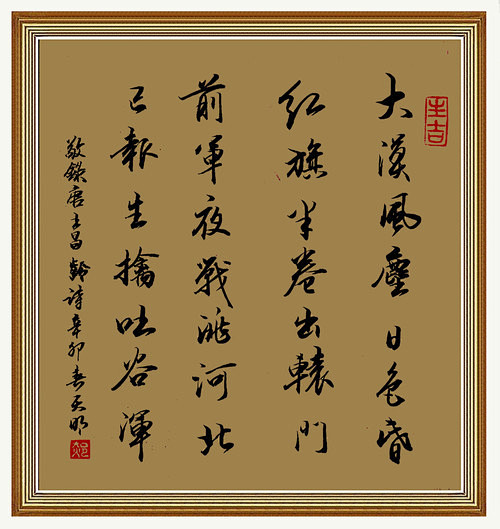 大漠風塵日色昏
紅旗半卷出轅門
前軍夜戰洮河北
已報生擒吐谷渾
敬錄唐王昌齡詩辛卯春天明